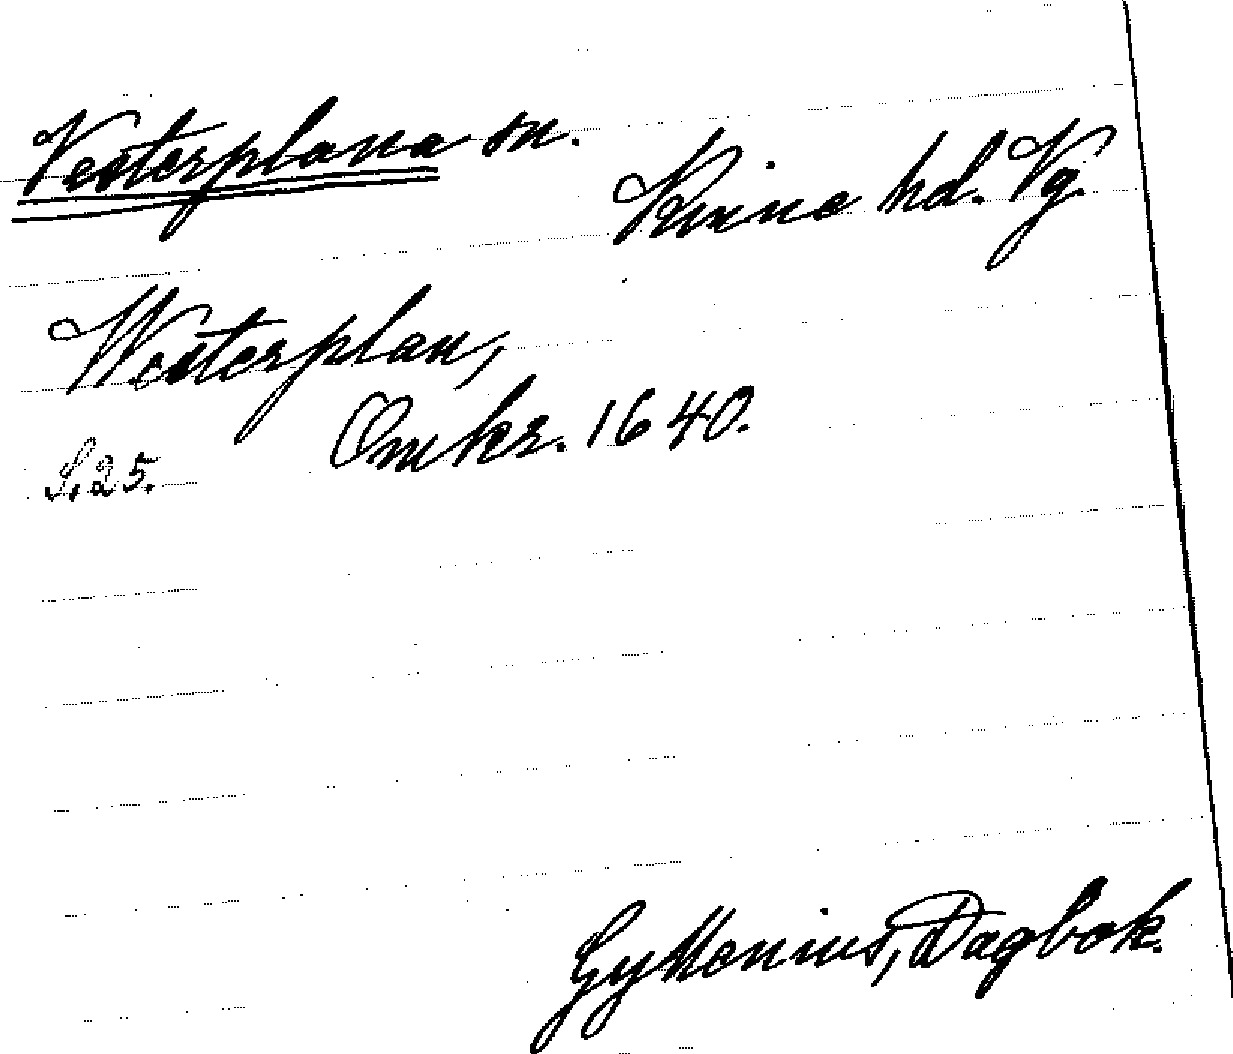 Vesterplana sn.
Kinne hd. Vg.
Westerplan,
Omkr. 1640.
S. 25.
Gyllenius, Dagbok.